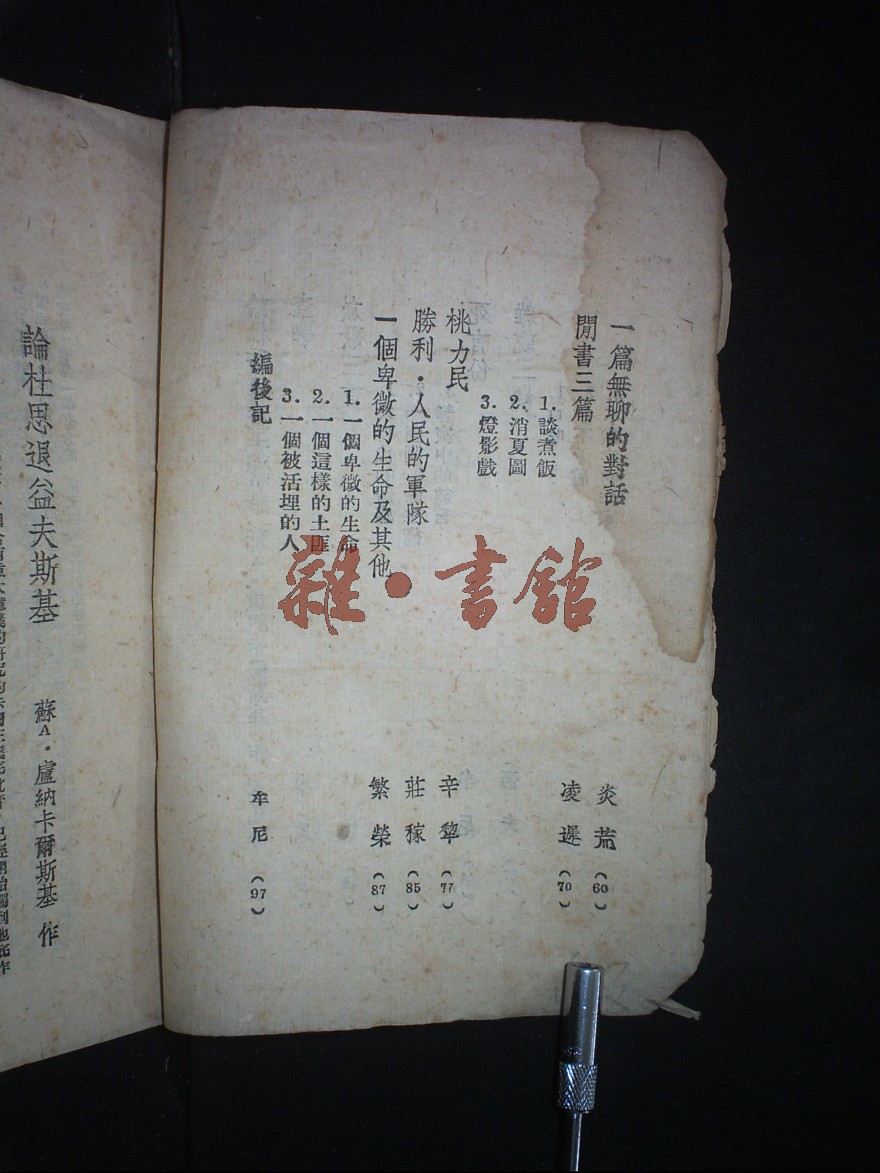 一篇無聊的對話 炎荒 (60)
閒書三篇 凌遲 (70)
1. 談煮飯
2. 消夏圖
3. 燈影戲
桃力民 辛犂 (77)
勝利·人民的軍隊 莊稼 (85)
一個卑微的生命及其他 繁榮 (87)
1. 一個卑微的生命
2. 一個這樣的土匪
3. 一個被活埋的人
編後記 牟尼 (97)
論杜思退益夫斯基
蘇A·盧納卡爾斯基 作
雜·書館